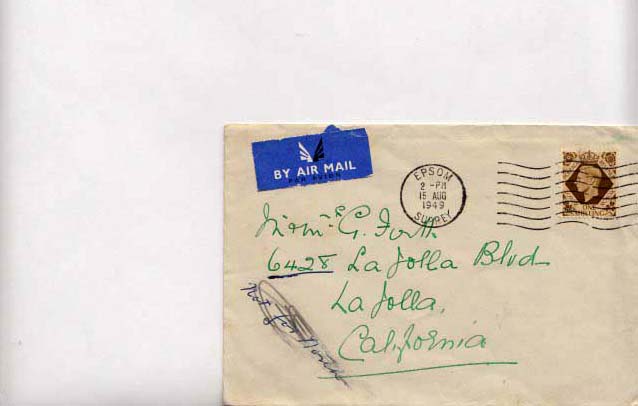 BY AIR MAIL
PAR AVION
EPSOM
2 - PM
15 AUG
1949
SURREY
ONE
SHILLING
G. Forth
6428 La Jolla Blvd
La Jolla,
California
Not for